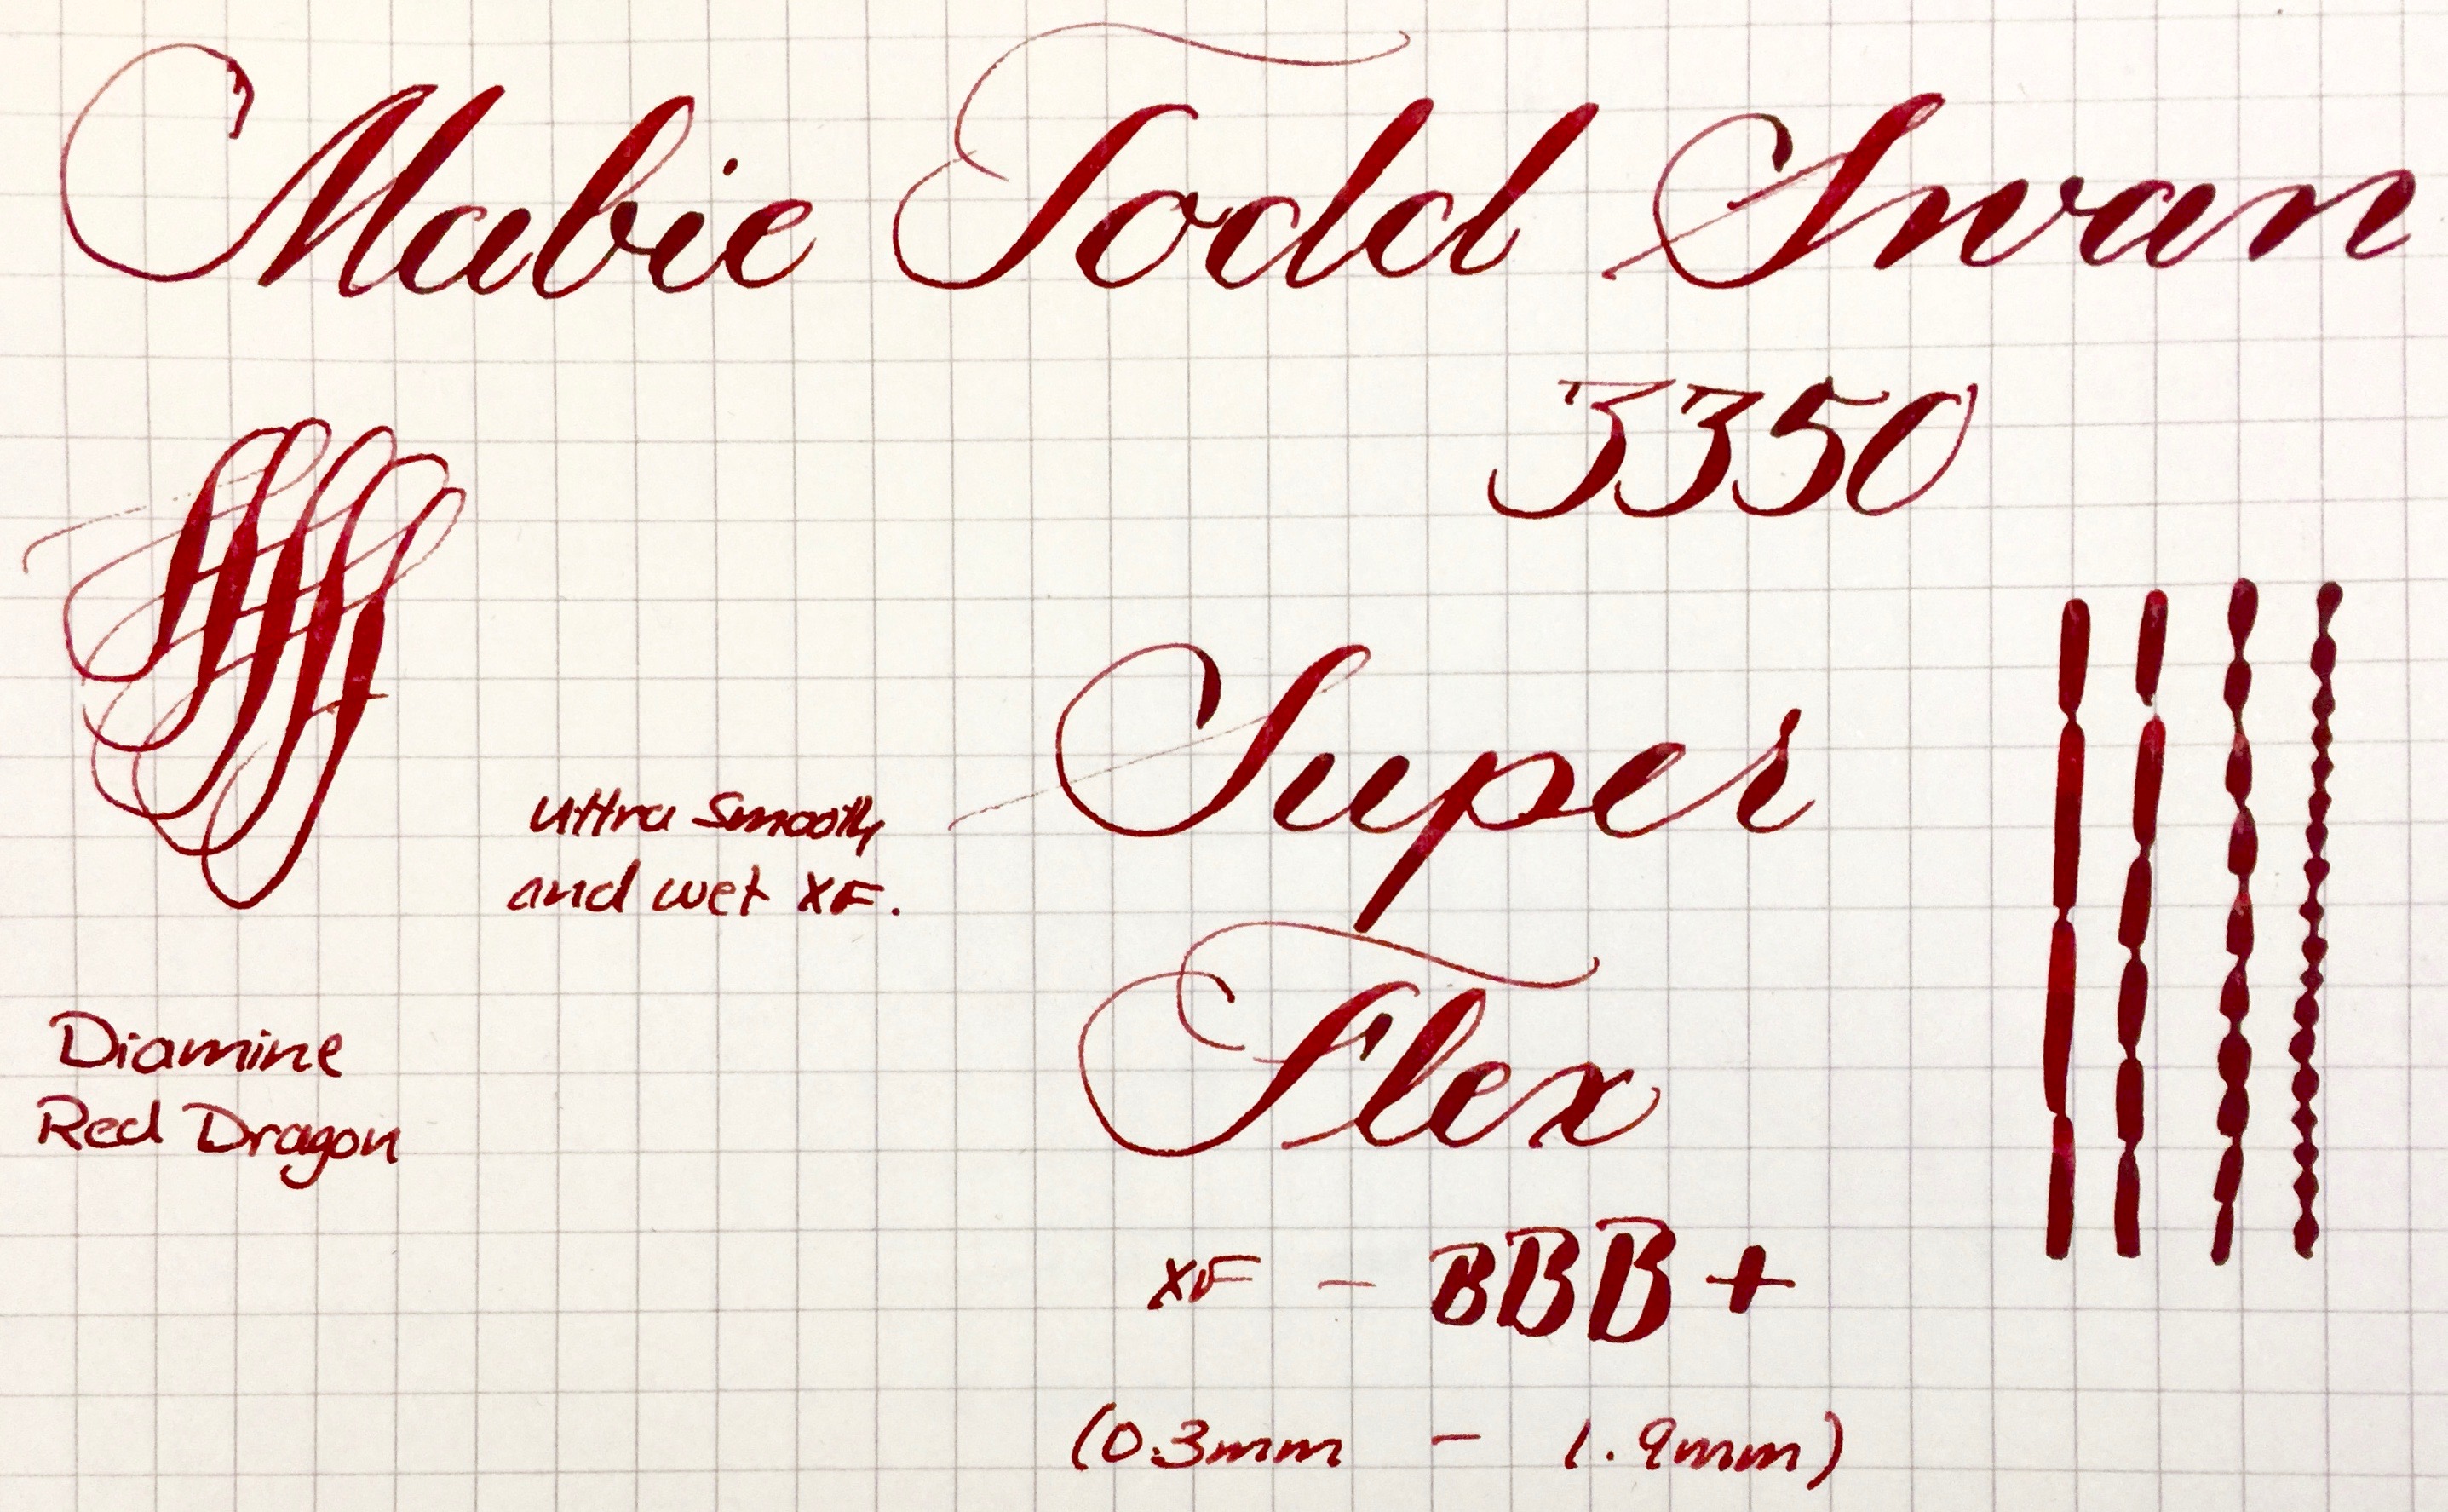 Mabie Todd Swan
3350
Super
ultra smooth
and wet XF.
Flex
Diamine
Red Dragon
XF - BBB +
(0.3mm - 1.9mm)